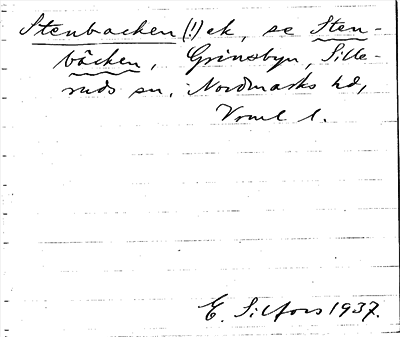 Stenbacken (!) ek, se Sten-
bäcken, Grinsbyn, Sille-
ruds sn, Nordmarks hd,
Vrml l.
E. Silfors 1937.